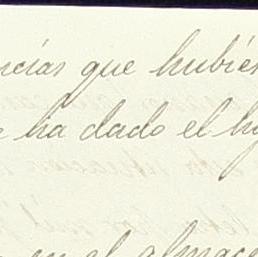 ncias que hubiés
ha dado el h
en el almace